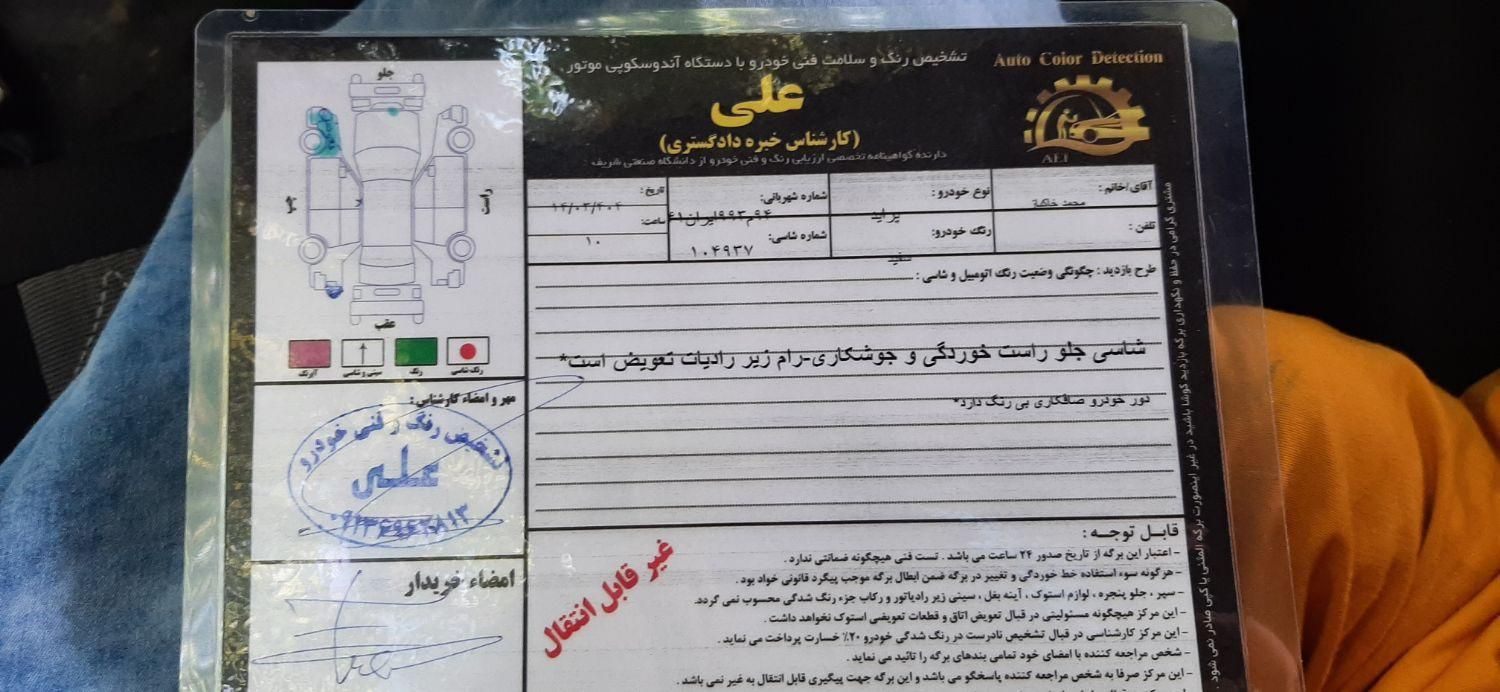 تشخیص رنگ و سلامت فنی خودرو با دستگاه آندوسکوپی موتور
Auto Color Detection
علی
(کارشناس خبره دادگستری)
دارنده گواهینامه تخصصی ارزیابی رنگ و فنی خودرو از دانشگاه صنعتی شریف
AEI
جلو
چپ
راست
عقب
آبرنگ
سینی و شاسی
رنگ
رنگ شاسی
آقای/خانم :
نوع خودرو : پراید
شماره شهربانی: ۹۴م۹۹۳ایران۶۱
تاریخ : ۱۴/۰۳/۴۰۴
تلفن :
رنگ خودرو: سفید
شماره شاسی: ۱۰۴۹۳۷
ساعت: ۱۰
طرح بازدید : چگونگی وضعیت رنگ اتومبیل و شاسی :
شاسی جلو راست خوردگی و جوشکاری-رام زیر رادیات تعویض است*
دور خودرو صافکاری بی رنگ دارد*
مهر و امضاء کارشناس:
تشخیص رنگ و فنی خودرو
علی
امضاء خریدار
غیر قابل انتقال
قابل توجه :
- اعتبار این برگه از تاریخ صدور ۲۴ ساعت می باشد . تست فنی هیچگونه ضمانتی ندارد .
- هرگونه سوء استفاده خط خوردگی و تغییر در برگه ضمن ابطال برگه موجب پیگرد قانونی خواد بود .
- سپر ، جلو پنجره ، لوازم استوک ، آینه بغل ، سینی زیر رادیاتور و رکاب جزء رنگ شدگی محسوب نمی گردد.
- این مرکز هیچگونه مسئولیتی در قبال تعویض اتاق و قطعات تعویضی استوک نخواهد داشت .
- این مرکز کارشناسی در قبال تشخیص نادرست در رنگ شدگی خودرو ۲۰٪ خسارت پرداخت می نماید .
- شخص مراجعه کننده با امضای خود تمامی بندهای برگه را تائید می نماید .
- این مرکز صرفا به شخص مراجعه کننده پاسخگو می باشد و این برگه جهت پیگیری قابل انتقال به غیر نمی باشد .
مشتری گرامی در حفظ و نگهداری برگه بازدید کوشا باشید در غیر اینصورت برگه المثنی یا کپی صادر نمی شود .